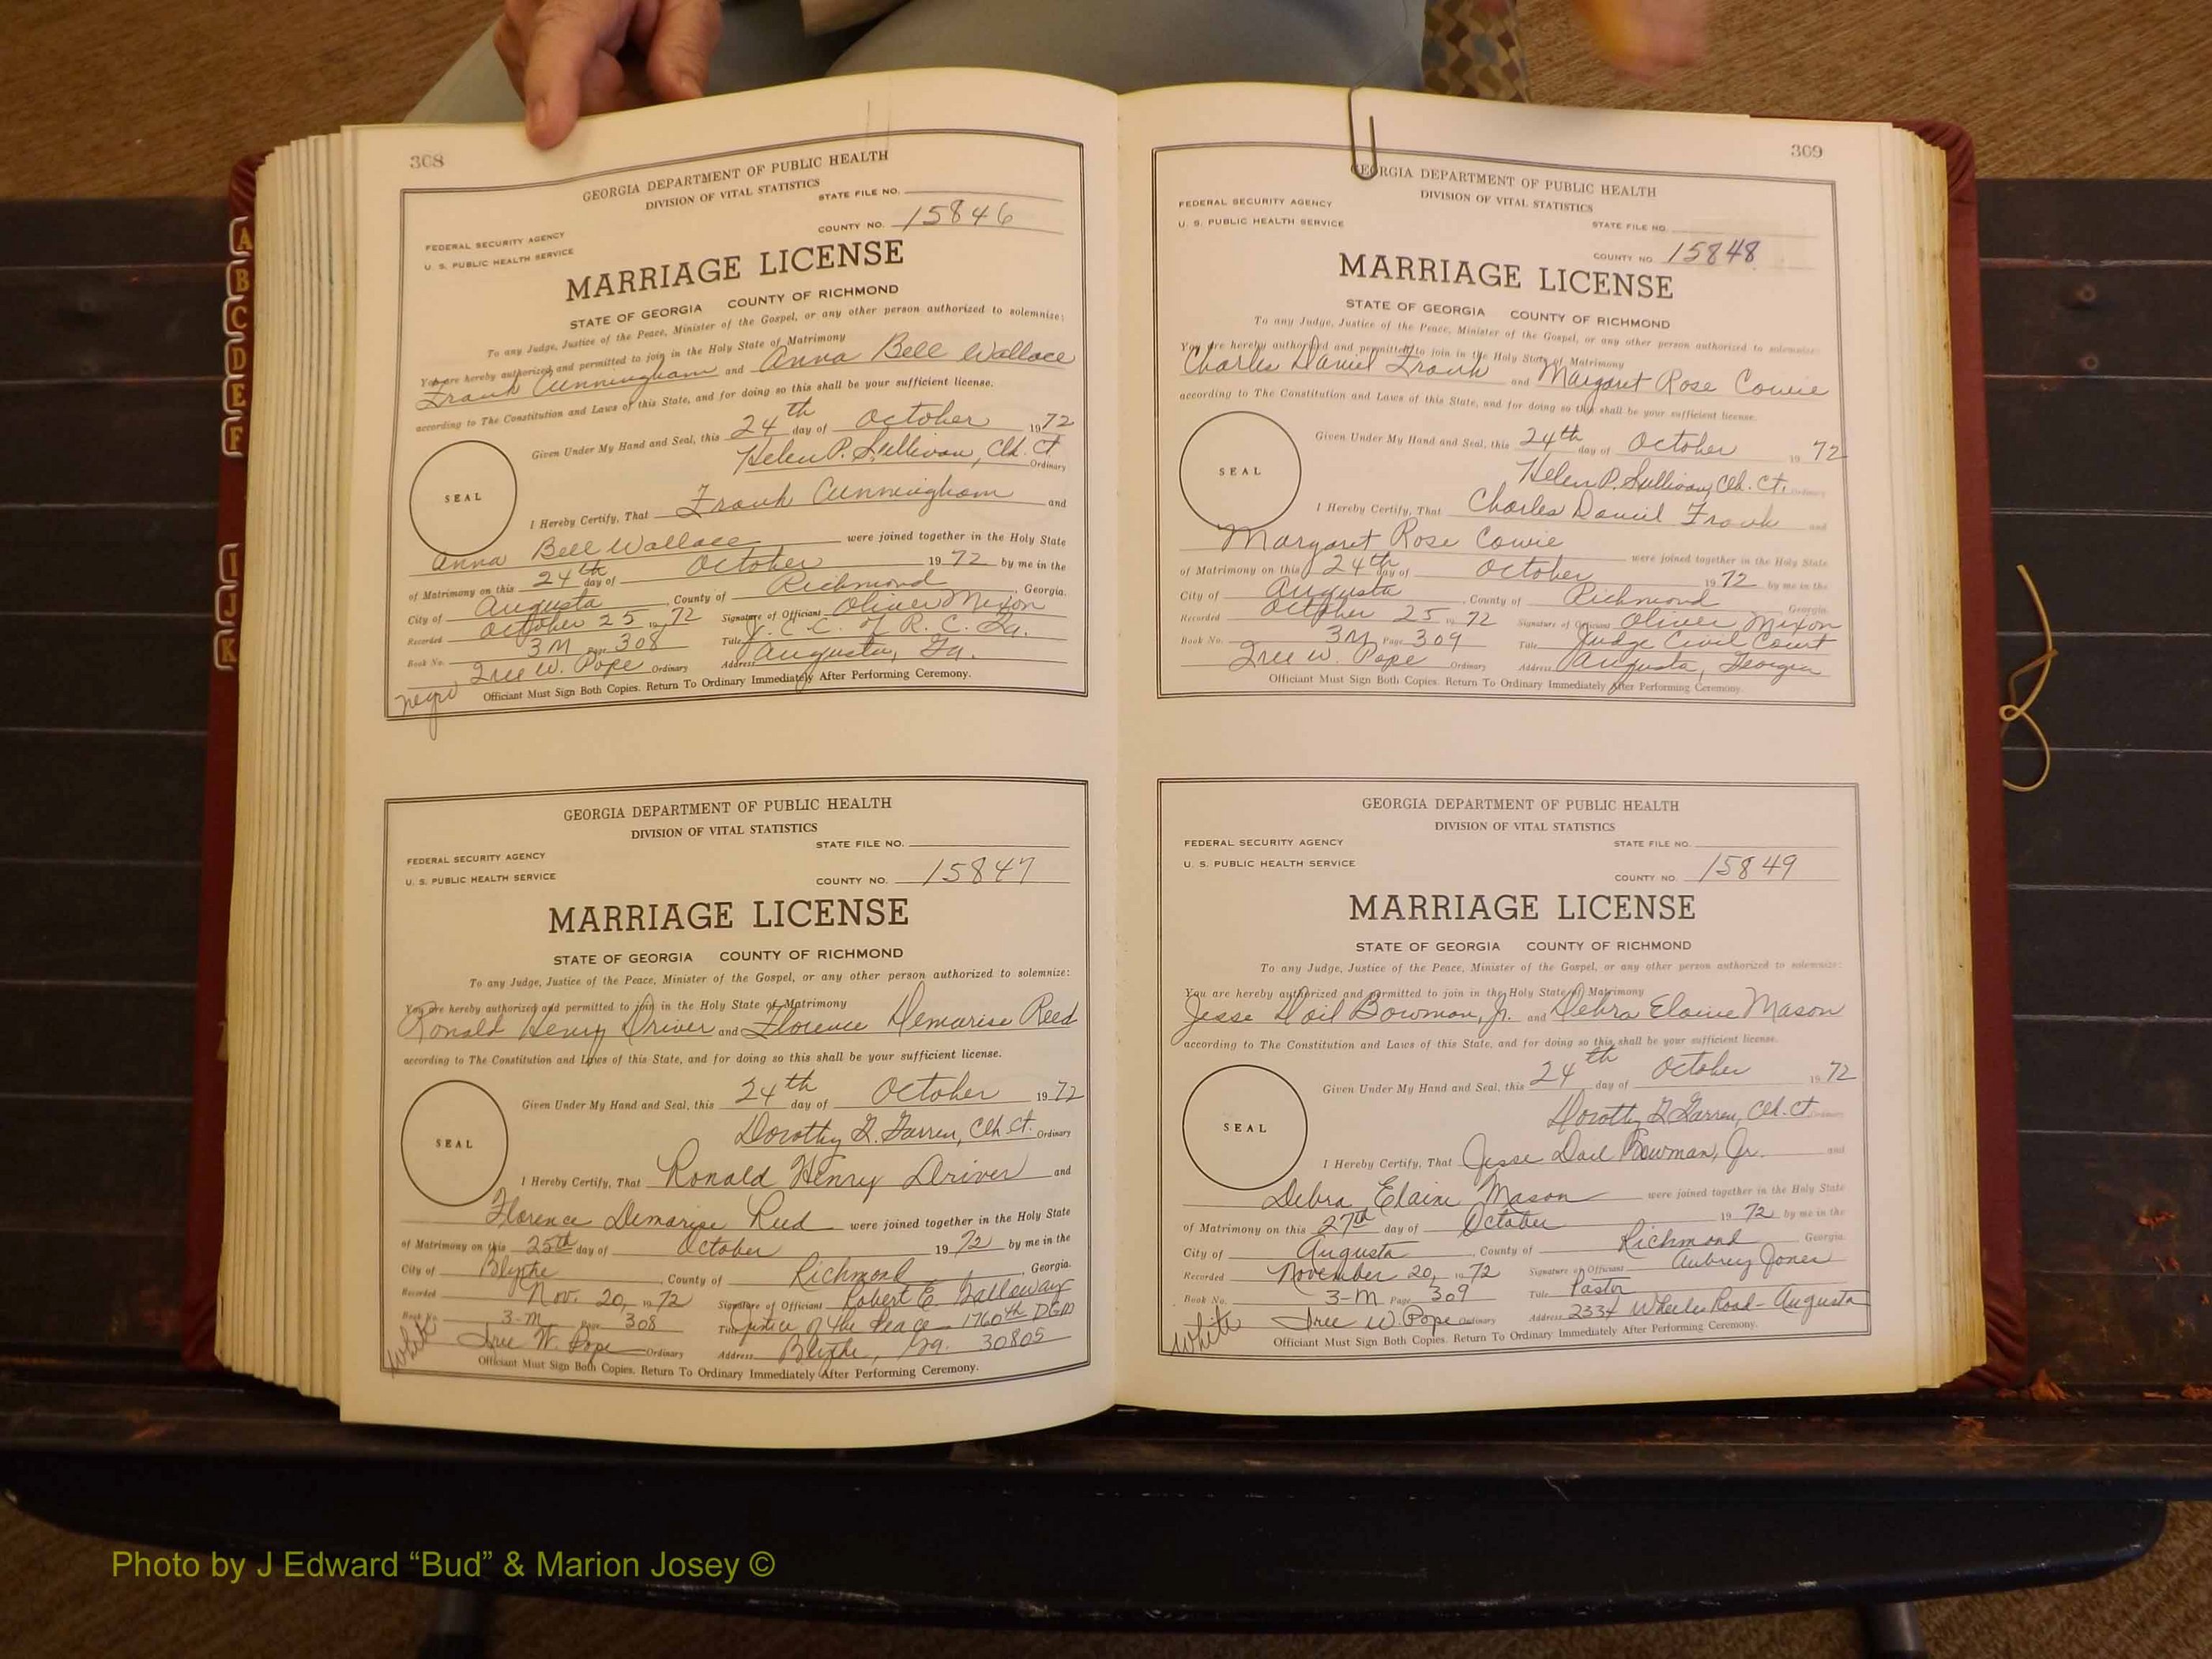 A
B
C
D
E
F
I
J
K
308
GEORGIA DEPARTMENT OF PUBLIC HEALTH
DIVISION OF VITAL STATISTICS
STATE FILE NO.
FEDERAL SECURITY AGENCY
COUNTY NO. 15846
U. S. PUBLIC HEALTH SERVICE
MARRIAGE LICENSE
STATE OF GEORGIA COUNTY OF RICHMOND
To any Judge, Justice of the Peace, Minister of the Gospel, or any other person authorized to solemnize:
You are hereby authorized and permitted to join in the Holy State of Matrimony
Frank Cunningham and Anna Bell Wallace
according to The Constitution and Laws of this State, and for doing so this shall be your sufficient license.
Given Under My Hand and Seal, this 24th day of October 1972
Helen P. Sullivan, Clk. Ct. Ordinary
SEAL
I Hereby Certify, That Frank Cunningham and
Anna Bell Wallace were joined together in the Holy State
of Matrimony on this 24th day of October 1972 by me in the
City of Augusta, County of Richmond, Georgia.
Recorded October 25 1972 Signature of Officiant Oliver Mixon
Book No. 3M Page 308 Title J. C. C. of R. C. Ga.
Iree W. Pope Ordinary Address Augusta, Ga.
negro Officiant Must Sign Both Copies. Return To Ordinary Immediately After Performing Ceremony.
GEORGIA DEPARTMENT OF PUBLIC HEALTH
DIVISION OF VITAL STATISTICS
STATE FILE NO.
FEDERAL SECURITY AGENCY
U. S. PUBLIC HEALTH SERVICE
COUNTY NO. 15847
MARRIAGE LICENSE
STATE OF GEORGIA COUNTY OF RICHMOND
To any Judge, Justice of the Peace, Minister of the Gospel, or any other person authorized to solemnize:
You are hereby authorized and permitted to join in the Holy State of Matrimony
Ronald Henry Driver and Florence Demarise Reed
according to The Constitution and Laws of this State, and for doing so this shall be your sufficient license.
Given Under My Hand and Seal, this 24th day of October 1972
Dorothy Clk. Ct. Ordinary
SEAL
I Hereby Certify, That Ronald Henry Driver and
Florence Demarise Reed were joined together in the Holy State
of Matrimony on this 25th day of October 1972 by me in the
City of Blythe, County of Richmond, Georgia.
Recorded Nov. 20, 1972 Signature of Officiant Robert E. Galloway
Book No. 3-M Page 308 Title Justice of the Peace 1760th DGM
Iree W. Pope Ordinary Address Blythe, Ga. 30805
white Officiant Must Sign Both Copies. Return To Ordinary Immediately After Performing Ceremony.
309
GEORGIA DEPARTMENT OF PUBLIC HEALTH
DIVISION OF VITAL STATISTICS
FEDERAL SECURITY AGENCY
U. S. PUBLIC HEALTH SERVICE
STATE FILE NO.
COUNTY NO. 15848
MARRIAGE LICENSE
STATE OF GEORGIA COUNTY OF RICHMOND
To any Judge, Justice of the Peace, Minister of the Gospel, or any other person authorized to solemnize:
You are hereby authorized and permitted to join in the Holy State of Matrimony
Charles Daniel Frank and Margaret Rose Cowie
according to The Constitution and Laws of this State, and for doing so this shall be your sufficient license.
Given Under My Hand and Seal, this 24th day of October 1972
Helen P. Sullivan, Clk. Ct. Ordinary
SEAL
I Hereby Certify, That Charles Daniel Frank and
Margaret Rose Cowie were joined together in the Holy State
of Matrimony on this 24th day of October 1972 by me in the
City of Augusta, County of Richmond, Georgia.
Recorded October 25 1972 Signature of Officiant Oliver Mixon
Book No. 3M Page 309 Title Judge Civil Court
Iree W. Pope Ordinary Address Augusta, Georgia
Officiant Must Sign Both Copies. Return To Ordinary Immediately After Performing Ceremony.
GEORGIA DEPARTMENT OF PUBLIC HEALTH
DIVISION OF VITAL STATISTICS
FEDERAL SECURITY AGENCY
STATE FILE NO.
U. S. PUBLIC HEALTH SERVICE
COUNTY NO. 15849
MARRIAGE LICENSE
STATE OF GEORGIA COUNTY OF RICHMOND
To any Judge, Justice of the Peace, Minister of the Gospel, or any other person authorized to solemnize:
You are hereby authorized and permitted to join in the Holy State of Matrimony
Jesse Doil Bowman, Jr. and Debra Elaine Mason
according to The Constitution and Laws of this State, and for doing so this shall be your sufficient license.
Given Under My Hand and Seal, this 24th day of October 1972
Dorothy Clk. Ct. Ordinary
SEAL
I Hereby Certify, That Jesse Doil Bowman, Jr. and
Debra Elaine Mason were joined together in the Holy State
of Matrimony on this 27th day of October 1972 by me in the
City of Augusta, County of Richmond, Georgia.
Recorded November 20, 1972 Signature of Officiant Aubrey Jones
Book No. 3-M Page 309 Title Pastor
Iree W. Pope Ordinary Address 2334 Wheeler Road - Augusta
white Officiant Must Sign Both Copies. Return To Ordinary Immediately After Performing Ceremony.
Photo by J Edward “Bud” & Marion Josey ©